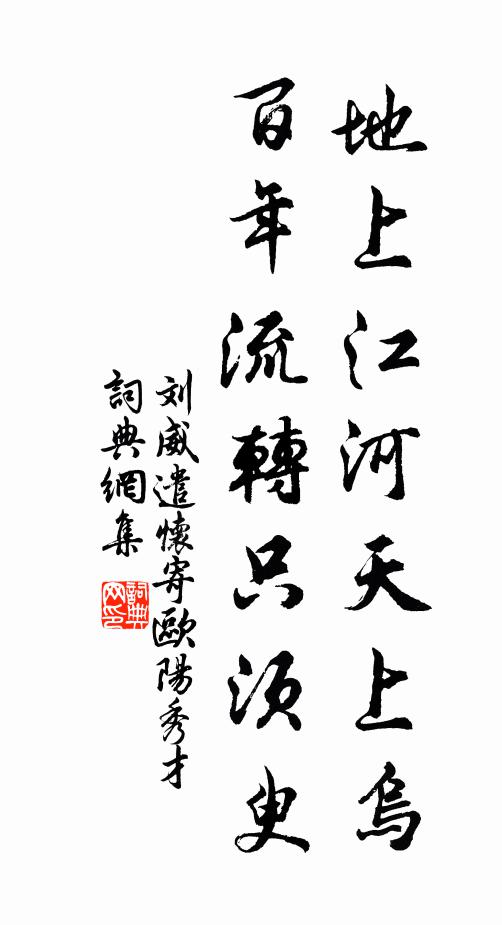 地上江河天上烏
百年流轉只須臾
刘威遣懷寄歐陽秀才
詞典網集
詞典
网印